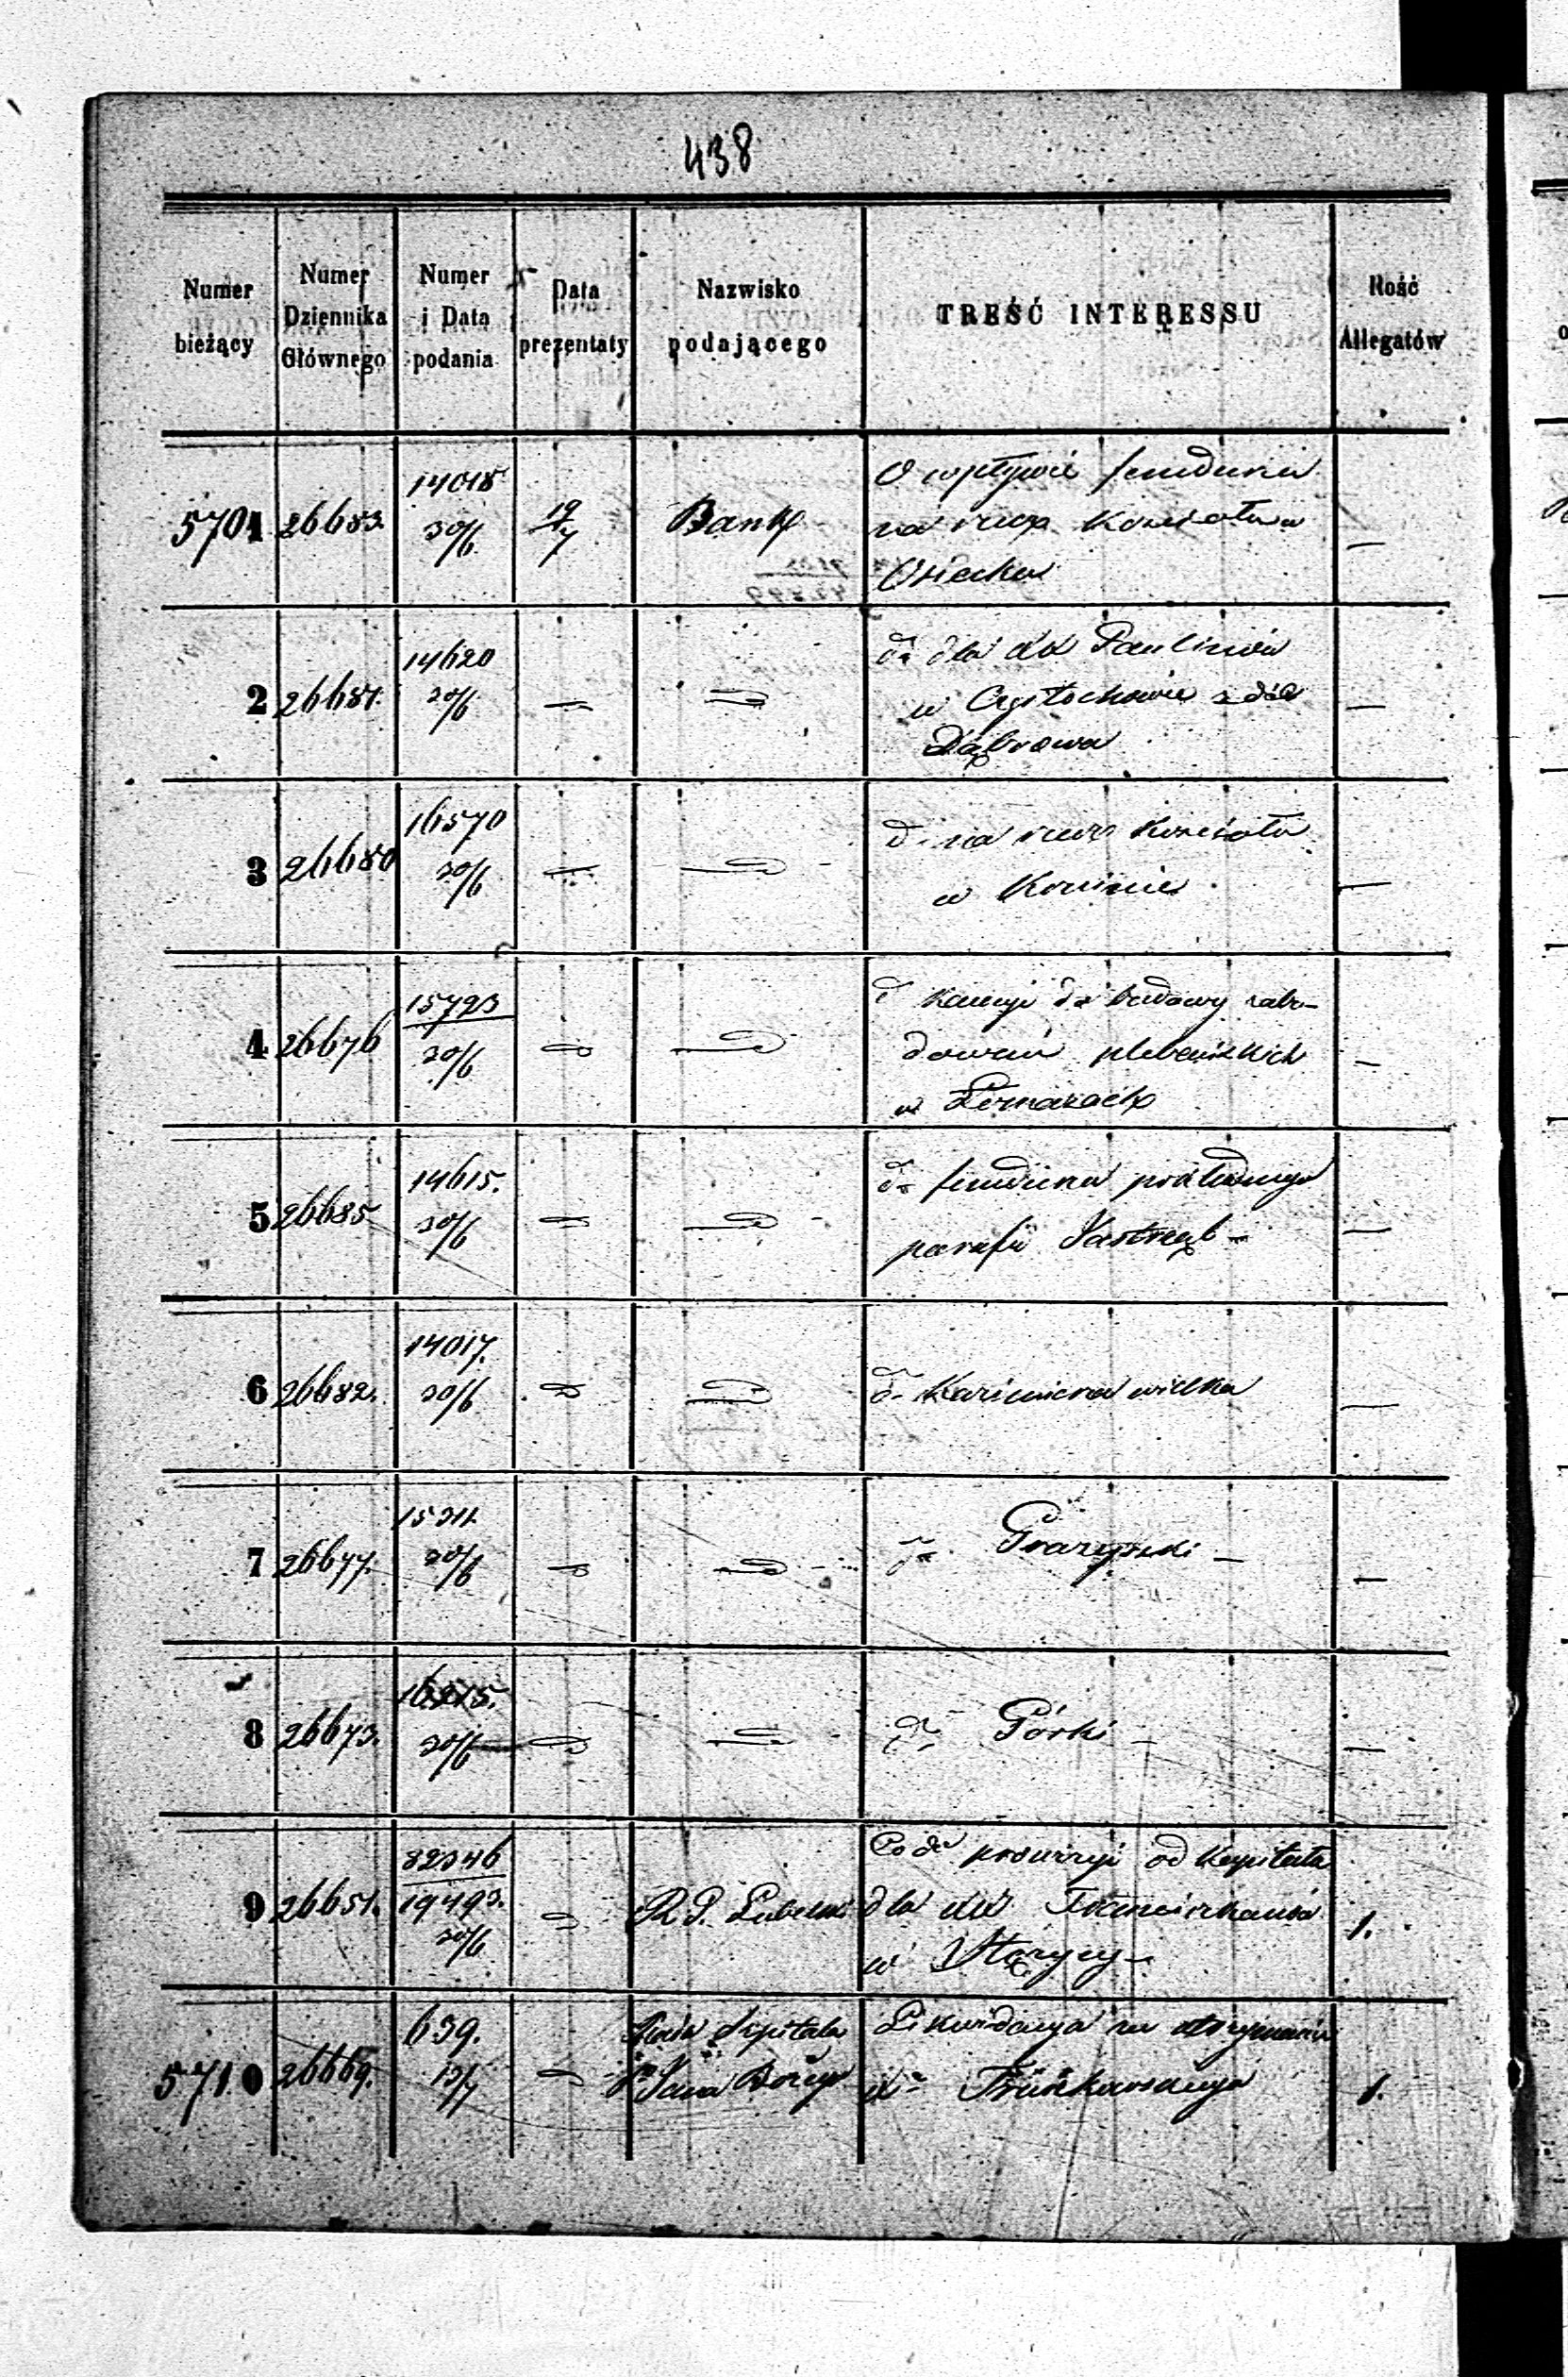 438
Numer bieżący
Numer Dziennika Głównego
Numer i Data podania
Data prezentaty
Nazwisko podającego
TREŚĆ INTERESSU
Ilość Allegatów
5701 26683 14018 30/6 19/7 Bank
O wpływie funduszu
na rzecz Kościoła w
Osiecku —
2 26684. 14620 30/6 — —
do dla XX Paulinów
w Częstochowie z dóbr
Dąbrowa —
3 26680 16570 30/6 — —
do na rzecz Kościoła
w Koninie —
4 26676 15723 30/6 — —
do kaucyi do budowy zabu-
dowań plebańskich
w —
5 26685 14615. 30/6 — —
do funduszu
parafii Jastrząb —
6 26682. 14017. 30/6 — —
do Kazimierza wielka —
7 26677. 30/6 — —
do —
8 26673. 30/6 — —
do Górki —
9 26651. 82346 19493. 30/6 — R. G. Lubelski
prowizyi od Kapitału
dla XX Franciszkanów
w 1.
5710 26669. 639. 13/7 — Rada Szpitala
Jana Bożego
Likwidacya za utrzymanie
Xa 1.